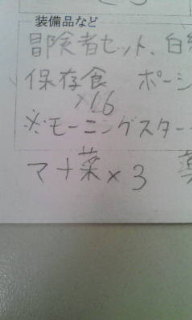 装備品など
冒険者セット、白紙
保存食 ポーシ
×16
※モーニングスター
マナ菜×3 薬